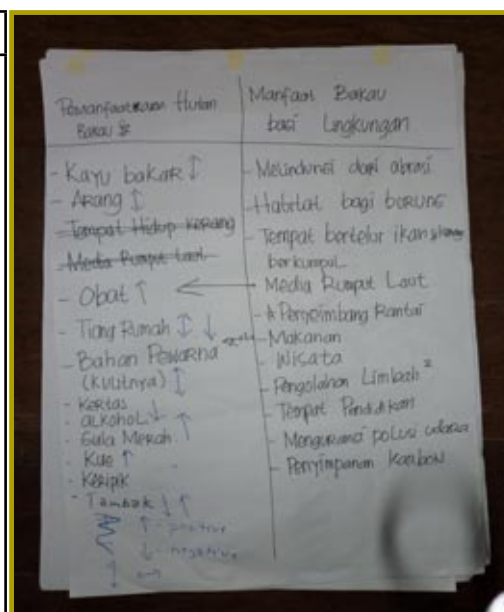 Pemanfaatan Hutan
Bakau
- Kayu bakar ↕
- Arang ↕
- Tempat Hidup Kerang
- Media Rumput Laut
- Obat ↑
- Tiang Rumah ↕ ↓
- Bahan Pewarna
(kulitnya) ↕
- Kertas
- alkohol ↓
- Gula Merah ↑
- Kue ↑
- Keripik
- Tambak ↓ ↑
↑ - positive
↓ - negative
Manfaat Bakau
bagi Lingkungan
- Melindungi dari abrasi
- Habitat bagi burung
- Tempat bertelur ikan
berkumpul
- Media Rumput Laut
- * Penyeimbang Rantai
- Makanan
- Wisata
- Pengolahan Limbah²
- Tempat Pendidikan
- Mengurangi polusi udara
- Penyimpanan Karbon